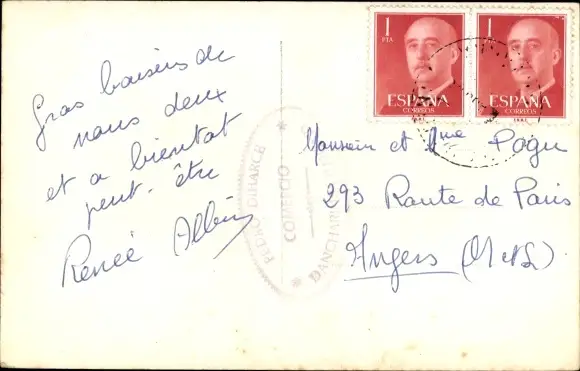 Gros baisers de
nous deux
et a bientot
peut-être
Renée Albin
1
PTA
ESPAÑA
CORREOS
1
ESPAÑA
CORREOS
PEDRO DIHARCE
COMERCIO
Monsieur et Mme Pogu
293 Route de Paris
Angers (M et L)